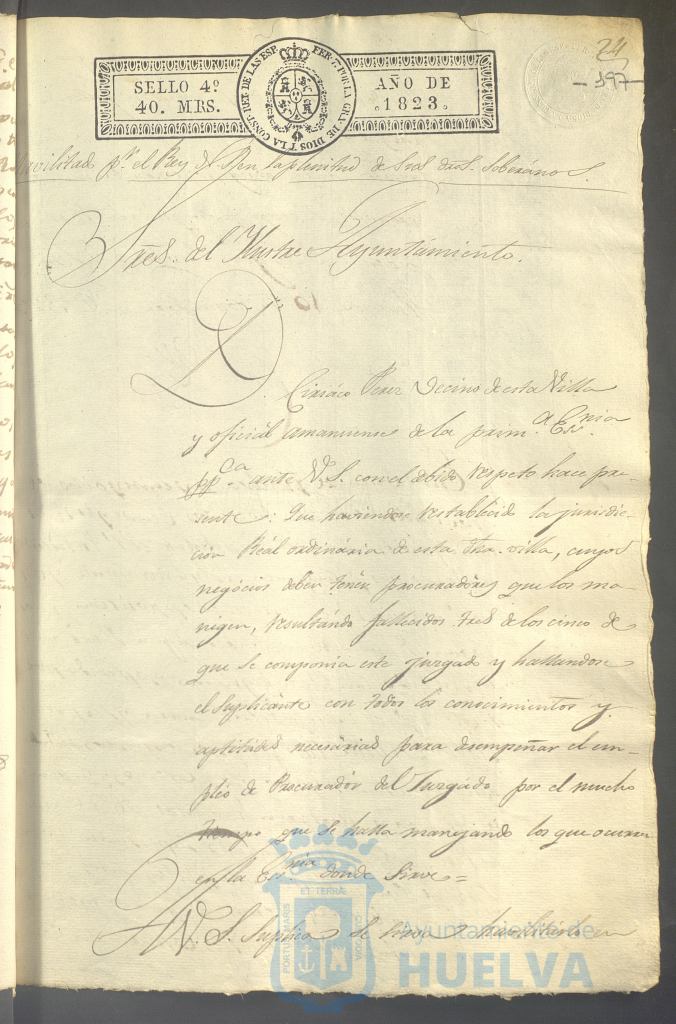 24
-197-
SELLO 4º
40. MRS.
FER. 7º POR LA G. DE DIOS Y LA CONST. REY DE LAS ESP.
AÑO DE
1823
havilitado pr. el Rey N. S. en la plenitud de sus dros. Soberános.
Sres. del Ylustre Ayuntamiento.
D. Ciriáco Perez Vecino de esta Villa
y oficiál amanuense de la prim.a Esc.nia
pp.ca ante V. S. con el debido respeto hace pre-
sente: Que haviendose restablecido la jurisdic-
ción Reál ordinária de esta dha. villa, cuyos
negócios deben tenér procuradores que los ma-
nigen, resultándo fallecidos tres de los cinco de
que se componia este juzgado y hallandose
el Suplicánte con todos los conocimientos y
aptitúdes necesárias para desempeñar el em-
pléo de Procuradór del Juzgádo por el mucho
tiempo que se halla manejando los que ocurren
en la Esc.nia donde Sirve=
A V. S. Suplica Se sirva havilitarlo en
PORTUS MARIS
ET TERRÆ
CUSTODIA
Ayuntamiento de
HUELVA